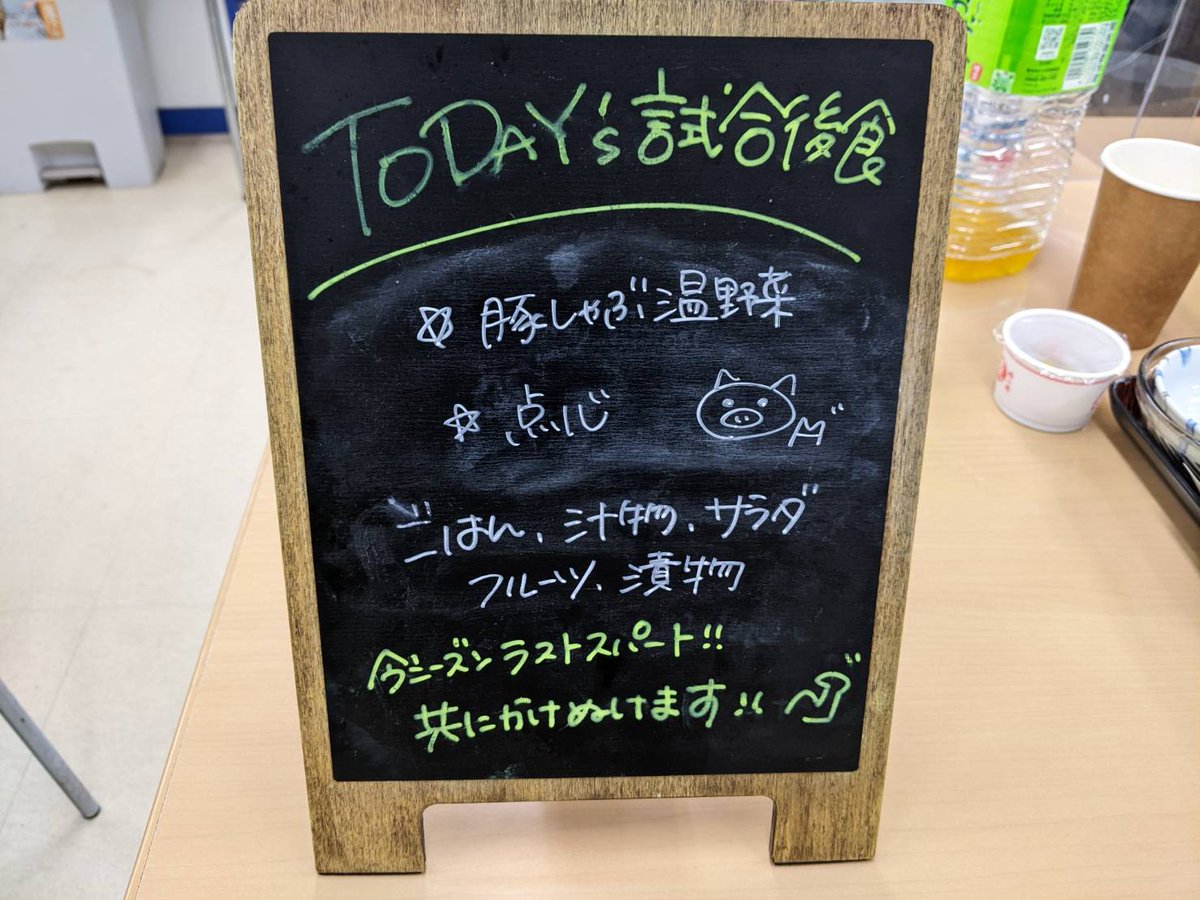 TODAY's 試合後食
☆ 豚しゃぶ温野菜
☆ 点心
ごはん、汁物、サラダ
フルーツ、漬物
今シーズンラストスパート!!
共にかけぬけます!!